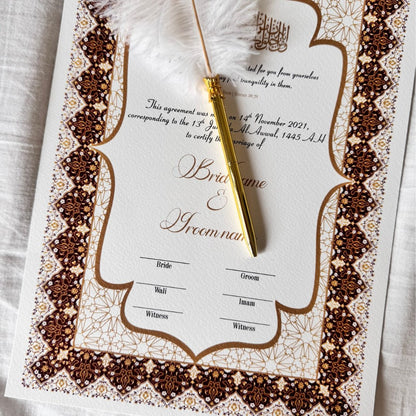 for you from yourselves
tranquility in them.
This agreement was made on 14th November 2021,
corresponding to the 13th Al-Awwal, 1445 A.H
to certify the marriage of
Bride name
&
Groom name
Bride
Groom
Wali
Imam
Witness
Witness